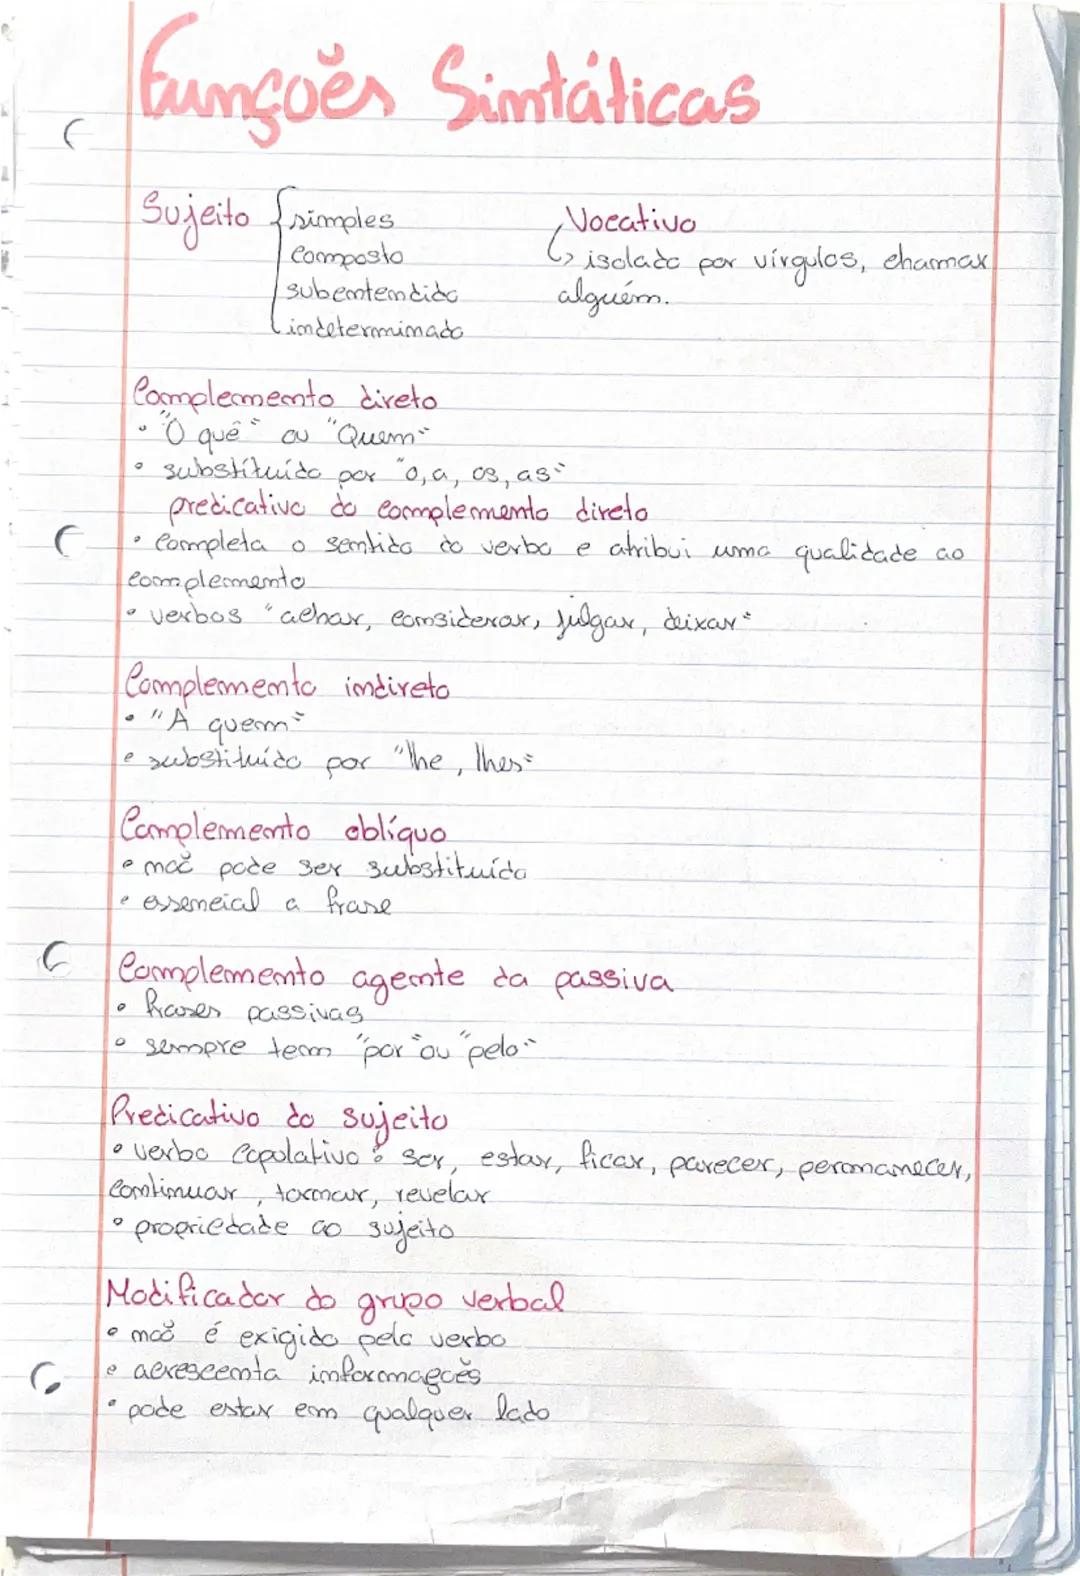 Funções Sintáticas
Sujeito { simples
composto
subentendido
indeterminado
Vocativo
↳ isolado por vírgulas, chamar
alguém.
Complemento direto
• "O quê" ou "Quem"
• substítuído por "o, a, os, as"
predicativo do complemento direto
• Completa o sentido do verbo e atribui uma qualidade ao
complemento
• verbos "achar, considerar, julgar, deixar"
Complemento indireto
• "A quem"
• substituído por "lhe, lhes"
Complemento oblíquo
• não pode ser substituído
• essencial a frase
Complemento agente da passiva
• frases passivas
• sempre tem "por" ou "pelo"
Predicativo do sujeito
• verbo copulativo: ser, estar, ficar, parecer, permanecer,
continuar, tornar, revelar
• propriedade ao sujeito
Modificador do grupo verbal
• não é exigido pelo verbo
• acrescenta informações
• pode estar em qualquer lado